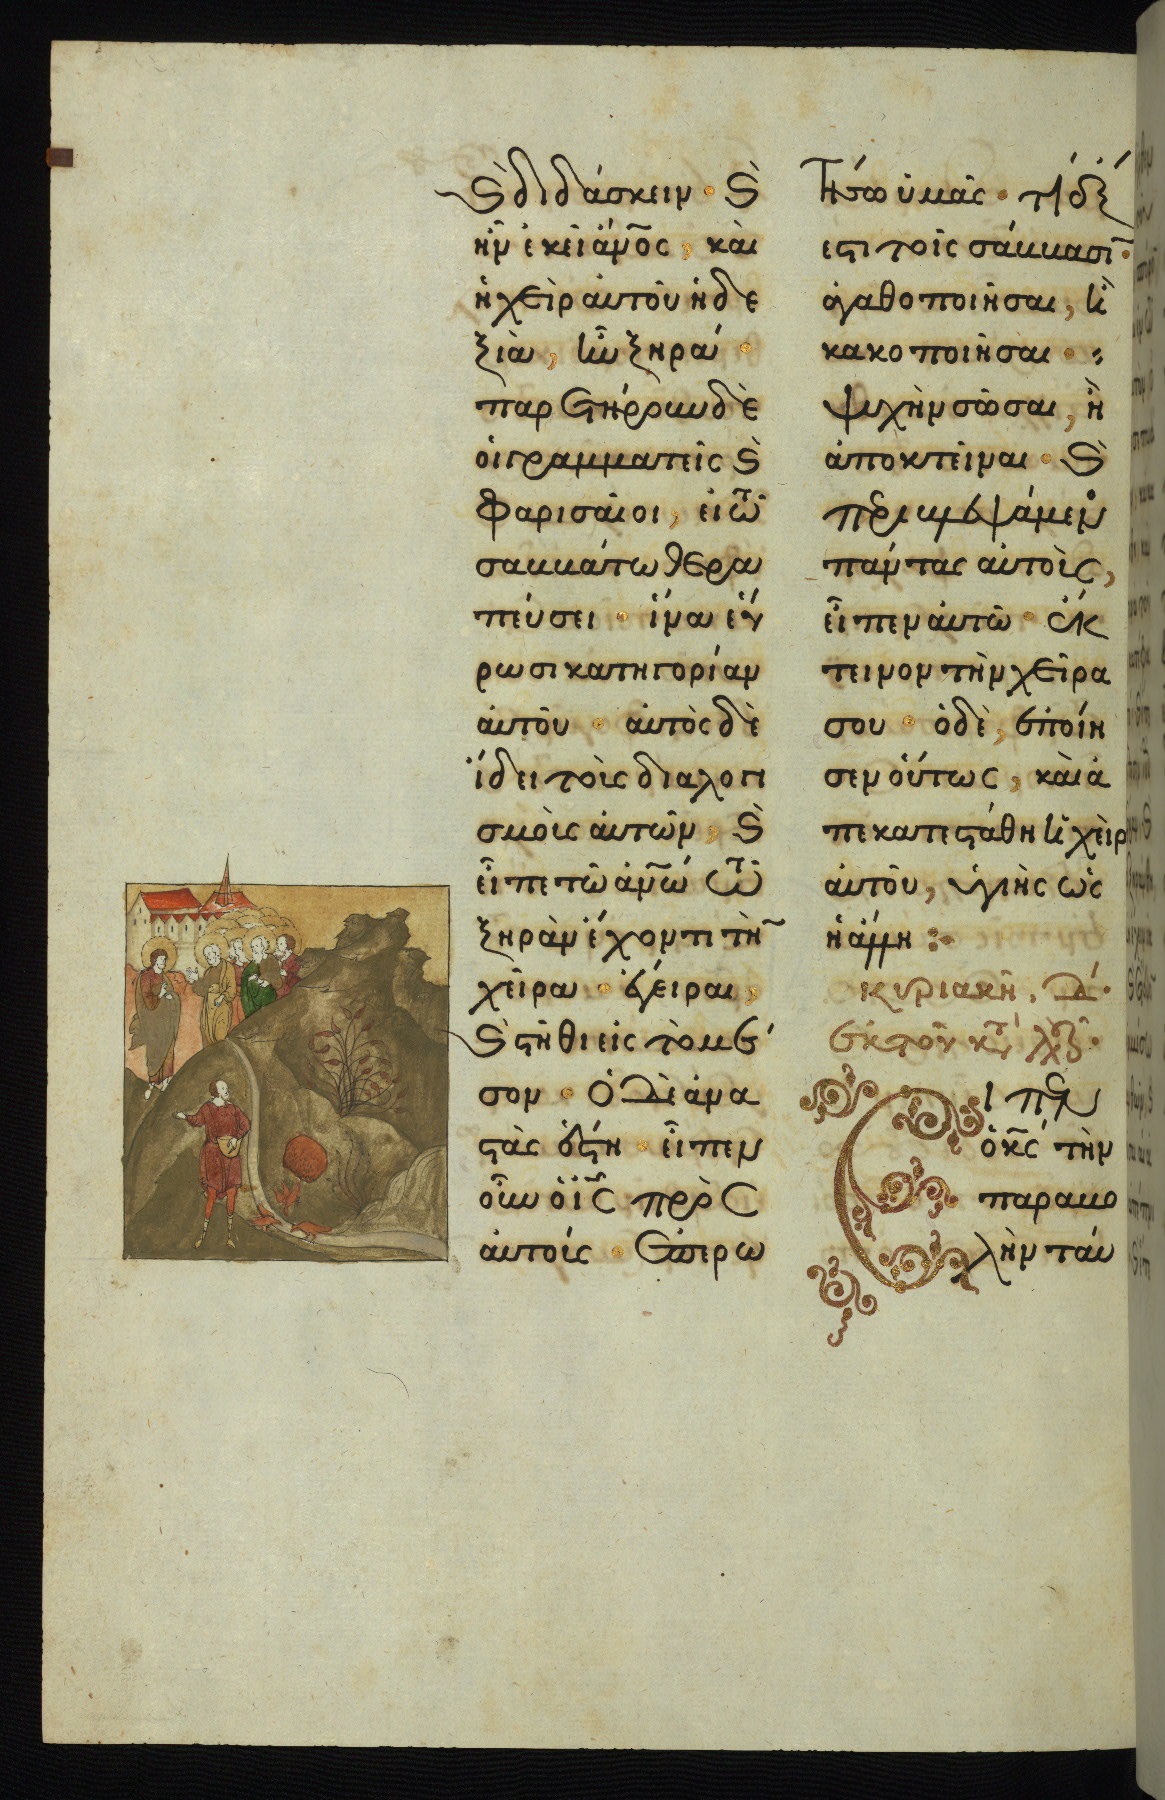 Ϗ̀ διδάσκειν · Ϗ̀
ἦν ἐκεῖ ἄν̅ος, καὶ
ἡ χεὶρ αὐτοῦ ἡ δε
ξιὰ, ἦν ξηρά ·
παρετήρουν δὲ
οἱ γραμματεῖς Ϗ̀
φαρισαῖοι, εἰ ἐν τῶ
σαββάτω θερα
πεύσει · ἵνα εὕ
ρωσι κατηγορίαν
αὐτοῦ · αὐτὸς δὲ
ἤδει τοὺς διαλογι
σμοὺς αὐτῶν, Ϗ̀
εἶπε τῶ ἀν̅ω τῶ
ξηρὰν ἔχοντι τὴν
χεῖρα · ἔγειραι,
Ϗ̀ στῆθι εἰς τὸ μέ
σον · ὁ δὲ ἀνα
στὰς ἔστη · εἶπεν
οὖν ὁ ἰς̅ πρὸς
αὐτούς · ἐπερω
τήσω ὑμᾶς · τί ἔξ
εστι τοῖς σάββασιν ·
ἀγαθοποιῆσαι, ἢ
κακοποιῆσαι ·
ψυχὴν σῶσαι, ἢ
ἀποκτεῖναι · Ϗ̀
περιβλεψάμενος
πάντας αὐτοὺς,
εἶπεν αὐτῶ · ἔκ
τεινον τὴν χεῖρα
σου · ὁ δὲ, ἐποίη
σεν οὕτως, καὶ ἀ
πεκατεστάθη ἡ χεὶρ
αὐτοῦ, ὑγιὴς ὡς
ἡ ἄλλη :·
κυριακῆ, δ΄ ·
ἐκ τοῦ κατὰ
Εἶπεν
ὁ κς̅ τὴν
παραβο
λὴν ταύ